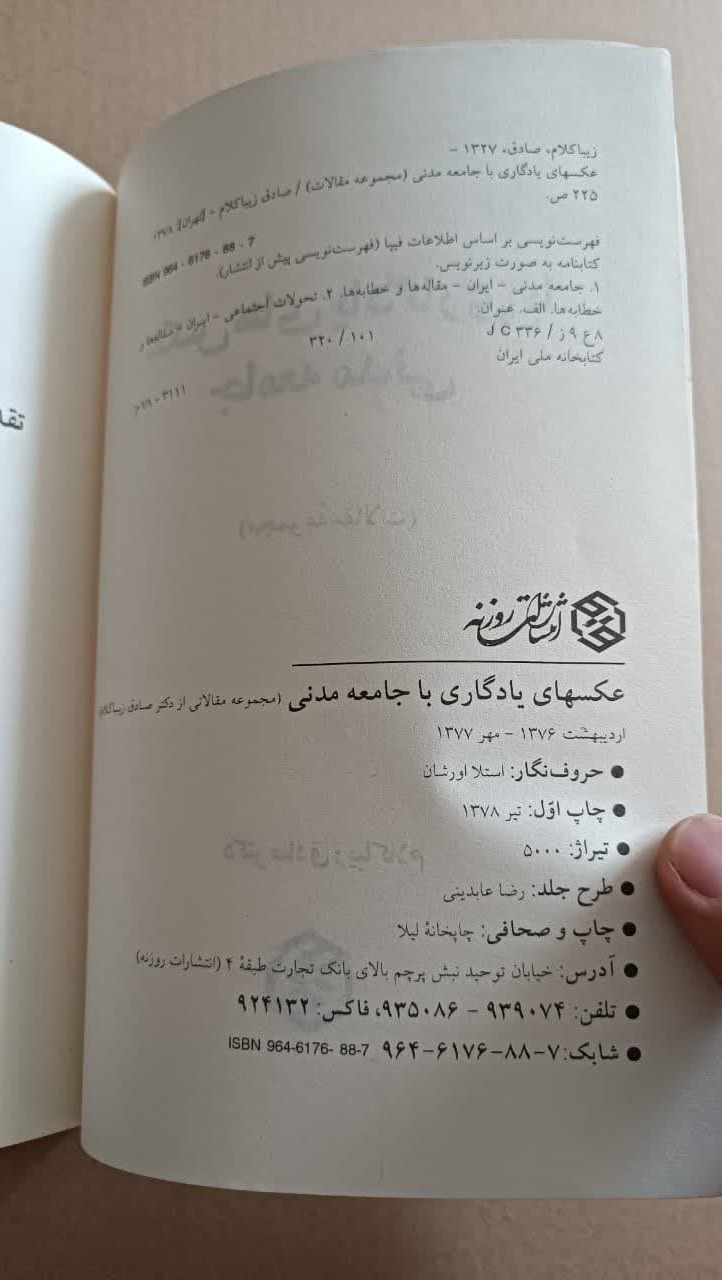 زیباکلام، صادق، ۱۳۲۷ –
عکسهای یادگاری با جامعه مدنی (مجموعه مقالات) / صادق زیباکلام – [تهران]: ۱۳۷۸
۲۲۵ ص.
ISBN 964 - 6176 - 88 - 7
فهرست‌نویسی بر اساس اطلاعات فیپا (فهرست‌نویسی پیش از انتشار).
کتابنامه به صورت زیرنویس.
۱. جامعه مدنی – ایران – مقاله‌ها و خطابه‌ها. ۲. تحولات اجتماعی – ایران – مقاله‌ها و
خطابه‌ها. الف. عنوان.
۸ع ۹ز / JC ۳۳۶
۳۲۰ / ۱۰۱
کتابخانه ملی ایران
۷۹ – ۳۱۱۱م
انتشارات روزنه
عکسهای یادگاری با جامعه مدنی (مجموعه مقالاتی از دکتر صادق زیباکلام)
اردیبهشت ۱۳۷۶ – مهر ۱۳۷۷
● حروف‌نگار: استلا اورشان
● چاپ اوّل: تیر ۱۳۷۸
● تیراژ: ۵۰۰۰
● طرح جلد: رضا عابدینی
● چاپ و صحافی: چاپخانهٔ لیلا
● آدرس: خیابان توحید نبش پرچم بالای بانک تجارت طبقهٔ ۴ (انتشارات روزنه)
● تلفن: ۹۳۹۰۷۴ – ۹۳۵۰۸۶، فاکس: ۹۲۴۱۳۲
● شابک: ۷–۸۸–۶۱۷۶–۹۶۴ ISBN 964-6176- 88-7